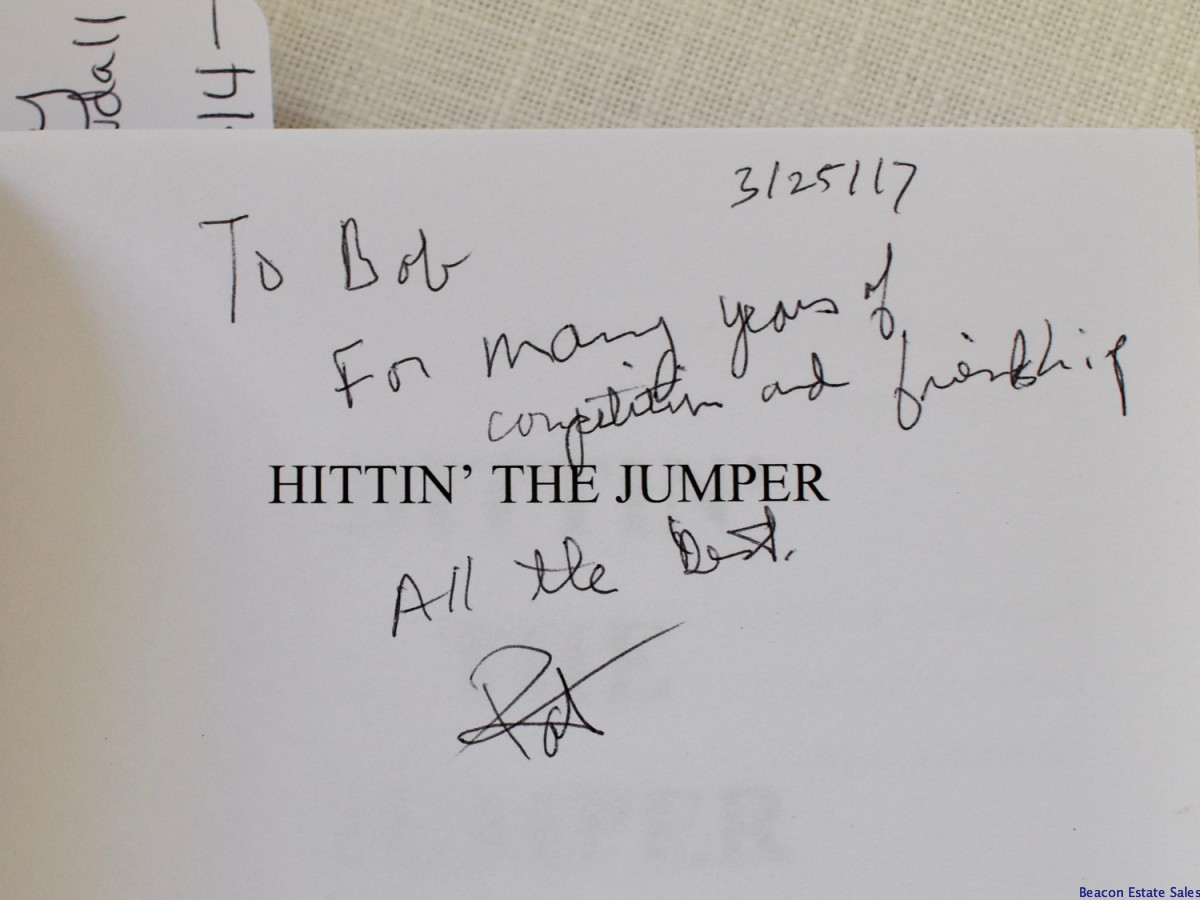 dall
14-
3/25/17
To Bob
For many years of
competition and friendship
HITTIN' THE JUMPER
All the Best.
Pat
Beacon Estate Sales